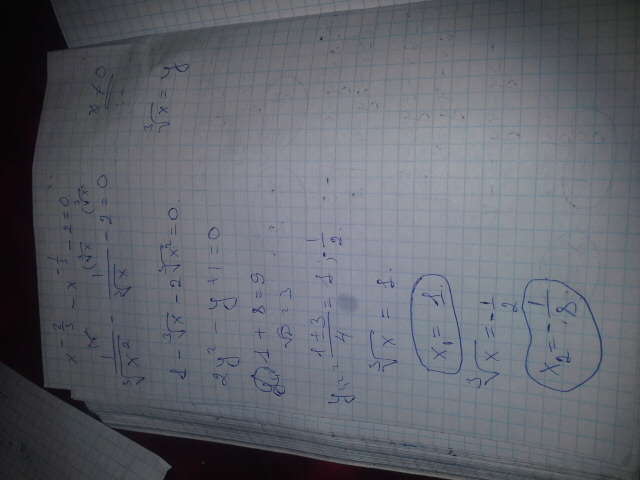 x^{-\frac{2}{3}} - x^{-\frac{1}{3}} - 2 = 0
x ≠ 0
\frac{1}{\sqrt[3]{x^2}} - \frac{1}{\sqrt[3]{x}} - 2 = 0
\sqrt[3]{x} = y
1 - \sqrt[3]{x} - 2\sqrt[3]{x^2} = 0
2y^2 - y + 1 = 0
1 + 8 = 9
\sqrt{D} = 3
y_{1,2} = \frac{1 ± 3}{4} = 1; -\frac{1}{2}.
\sqrt[3]{x} = 1.
x_1 = 1.
\sqrt[3]{x} = -\frac{1}{2}
x_2 = -\frac{1}{8}